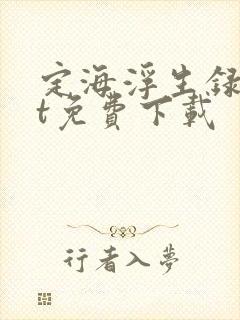 定海浮生録
t免費下載
行者入夢